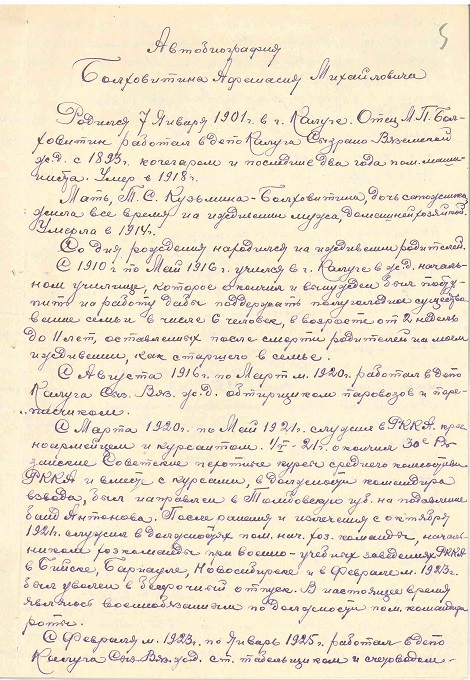 5
Автобиография
Болховитина Афанасия Михайловича
Родился 7 Января 1901 г. в г. Калуге. Отец М.П. Бол-
ховитин работал в депо Калуга Сызрано Вяземской
ж.д. с 1893 г. кочегаром и последние два года пом. маши-
ниста. Умер в 1918 г.
Мать, Т.С. Кузьмина-Болховитина, дочь сапожника,
жила все время на иждивении мужа, домашней хозяйкой.
Умерла в 1917 г.
Со дня рождения находился на иждивении родителей.
С 1910 г. по Май 1916 г. учился в г. Калуге в ж.д. началь-
ном училище, которое окончил и вынужден был посту-
пить на работу дабы поддержать полуголодное существо-
вание семьи в числе 6 человек, в возрасте от 2 недель
до 11 лет, оставленных после смерти родителей на моем
иждивении, как старшего в семье.
С Августа 1916 г. по Март м. 1920 г. работал в депо
Калуга Сыз. Вяз. ж.д. обтирщиком паровозов и пере-
писчиком.
С Марта 1920 г. по Май 1921 г. служил в РККА крас-
ноармейцем и курсантом. 1/V-21 г. окончил 30е Ря-
занские Советские пехотные курсы среднего комсостава
РККА и вместе с курсами, в должности командира
взвода, был направлен в Тамбовскую губ. на подавление
банд Антонова. После ранения и излечения с октября
1921 г. служил в должностях пом. нач. хоз. команды, началь-
ником хоз команды при военно-учебных заведениях РККА
в Бийске, Барнауле, Новосибирске и в Феврале м. 1923 г.
был уволен в бессрочный отпуск. В настоящее время
являюсь военнообязанным по должности пом. командира
роты.
С Февраля м. 1923 г. по Январь 1925 г. работал в депо
Калуга Сыз. Вяз. ж.д. ст. табельщиком и счетоводом.